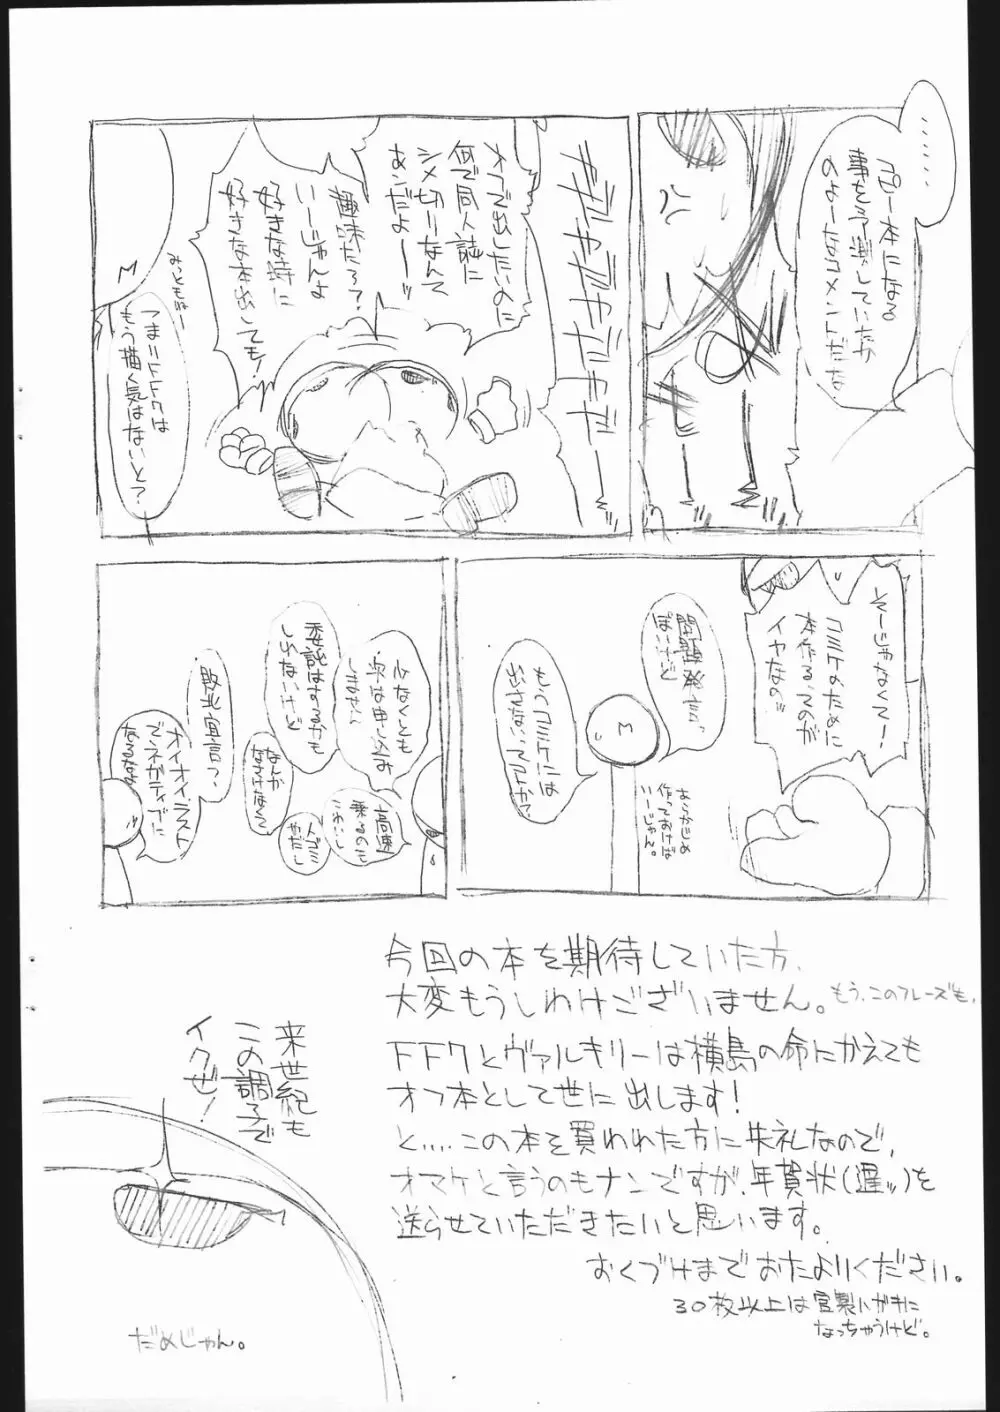 ……
コピー本になる
事を予測していたか
のよーなコメントだな
ヤダヤダヤダヤダ
ヤダヤダヤダー
オフで出したいのに
何で同人誌に
シメ切りなんて
あンだよーッ
趣味だろ？
いーじゃんよ
好きな時に
好きな本出しても！
みっともねー
M
つまりFF7は
もう描く気はないと？
そーじゃなくてー！
コミケのために
本作るってのが
イヤなのッ
問題発言っ
ぽいけど
M
もうコミケには
出さないってコトか？
あらかじめ
作っておけば
いーじゃん。
少なくとも
次は申し込み
しません
委託はするかも
しれないけど
高速
乗るのも
こわいし
人ゴミ
やだし
なんか
なさけなくて
敗北宣言？
オイオイ、ラスト
でネガティブに
なるなよ
今回の本を期待していた方、
大変もうしわけございません。もう、このフレーズも、
FF7とヴァルキリーは横島の命にかえても
オフ本として世に出します！
と……この本を買われた方に失礼なので、
オマケと言うのもナンですが、年賀状(遅ッ)を
送らせていただきたいと思います。
おくづけまでおたよりください。
30枚以上は官製ハガキに
なっちゃうけど。
来世紀も
この調子で
イクぜ！
だめじゃん。